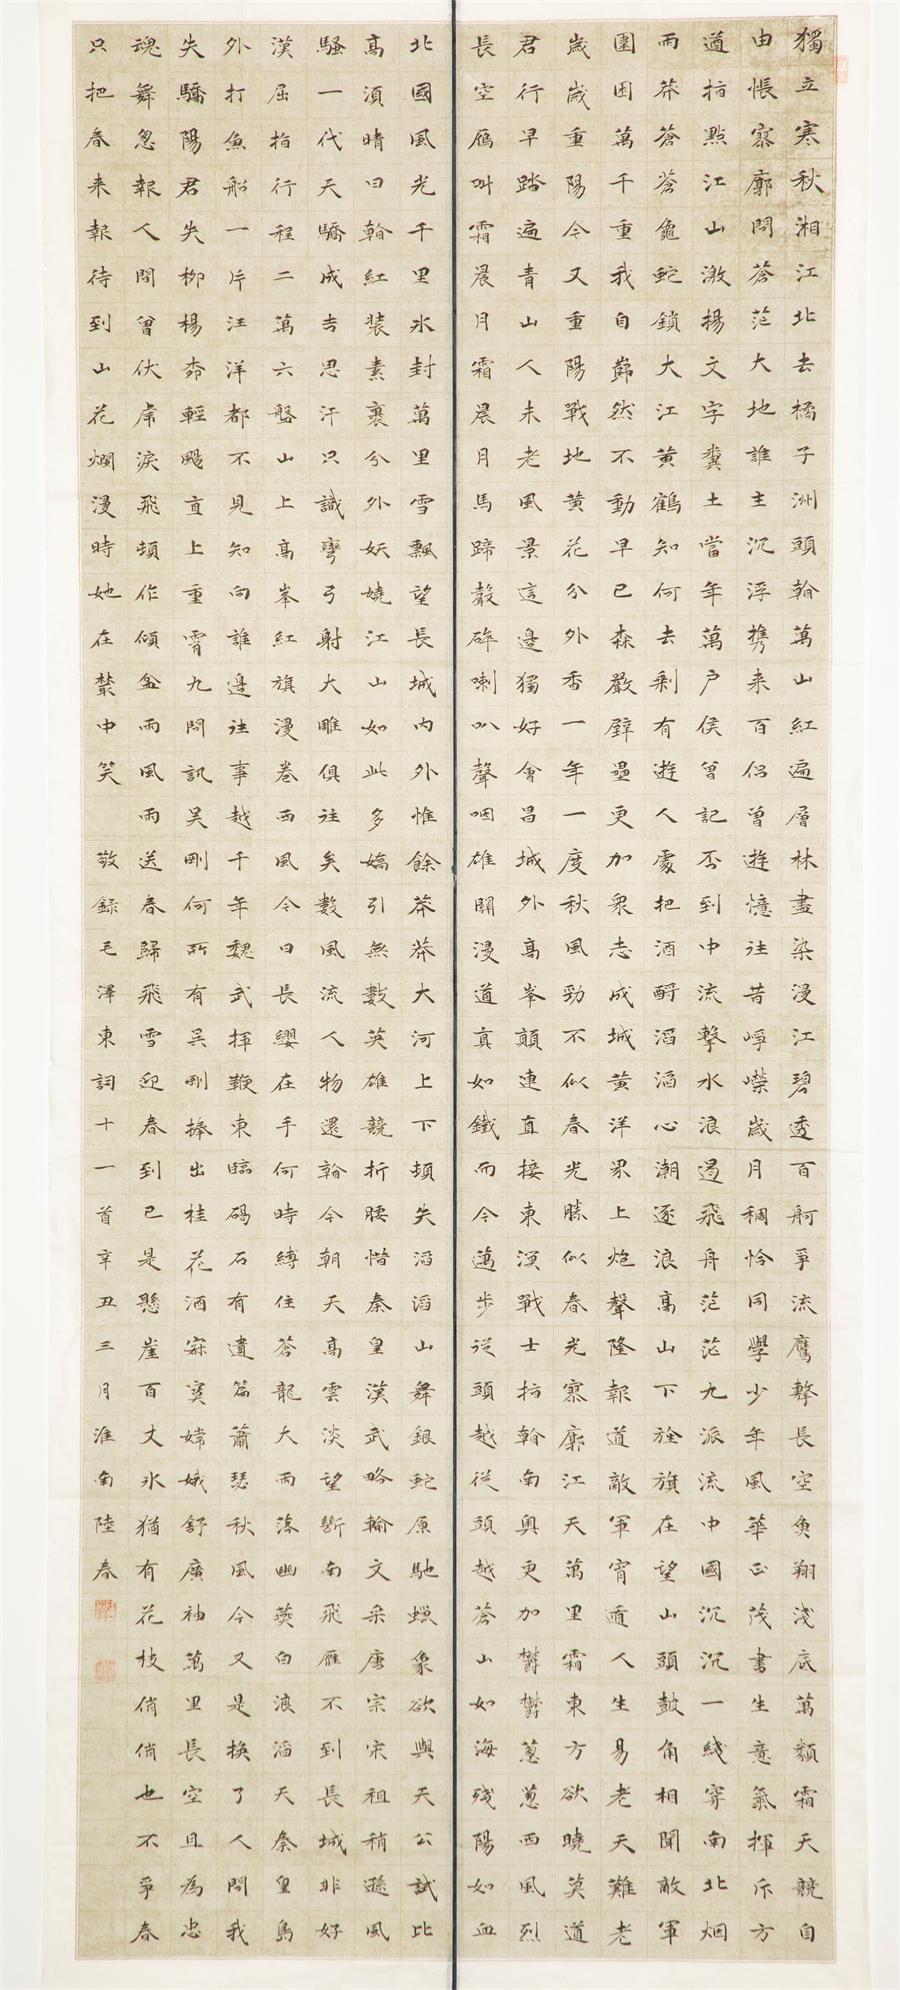 獨立寒秋湘江北去橘子洲頭看萬山紅遍層林盡染漫江碧透百舸爭流鷹擊長空魚翔淺底萬類霜天競自
由悵寥廓問蒼茫大地誰主沉浮攜来百侶曾遊憶往昔崢嶸歲月稠恰同學少年風華正茂書生意氣揮斥方
遒指點江山激揚文字糞土當年萬戶侯曾記否到中流擊水浪遏飛舟茫茫九派流中國沉沉一綫穿南北烟
雨莽蒼蒼龜蛇鎖大江黃鶴知何去剩有遊人處把酒酹滔滔心潮逐浪高山下旌旗在望山頭鼓角相聞敵軍
圍困萬千重我自巋然不動早已森嚴壁壘更加衆志成城黃洋界上炮聲隆報道敵軍宵遁人生易老天難老
歲歲重陽今又重陽戰地黃花分外香一年一度秋風勁不似春光勝似春光寥廓江天萬里霜東方欲曉莫道
君行早踏遍青山人未老風景這邊獨好會昌城外高峯顛連直接東溟戰士指看南粵更加鬱鬱蔥蔥西風烈
長空雁叫霜晨月霜晨月馬蹄聲碎喇叭聲咽雄關漫道真如鐵而今邁步從頭越從頭越蒼山如海殘陽如血
北國風光千里冰封萬里雪飄望長城内外惟餘莽莽大河上下頓失滔滔山舞銀蛇原馳蠟象欲與天公試比
高須晴日看紅裝素裹分外妖嬈江山如此多嬌引無數英雄競折腰惜秦皇漢武略輸文采唐宗宋祖稍遜風
騷一代天驕成吉思汗只識彎弓射大雕俱往矣數風流人物還看今朝天高雲淡望斷南飛雁不到長城非好
漢屈指行程二萬六盤山上高峯紅旗漫卷西風今日長纓在手何時縛住蒼龍大雨落幽燕白浪滔天秦皇島
外打魚船一片汪洋都不見知向誰邊往事越千年魏武揮鞭東臨碣石有遺篇蕭瑟秋風今又是換了人間我
失驕陽君失柳楊柳輕颺直上重霄九問訊吳剛何所有吳剛捧出桂花酒寂寞嫦娥舒廣袖萬里長空且為忠
魂舞忽報人間曾伏虎淚飛頓作傾盆雨風雨送春歸飛雪迎春到已是懸崖百丈冰猶有花枝俏俏也不爭春
只把春来報待到山花爛漫時她在叢中笑 敬録毛澤東詞十一首辛丑三月淮南陸春